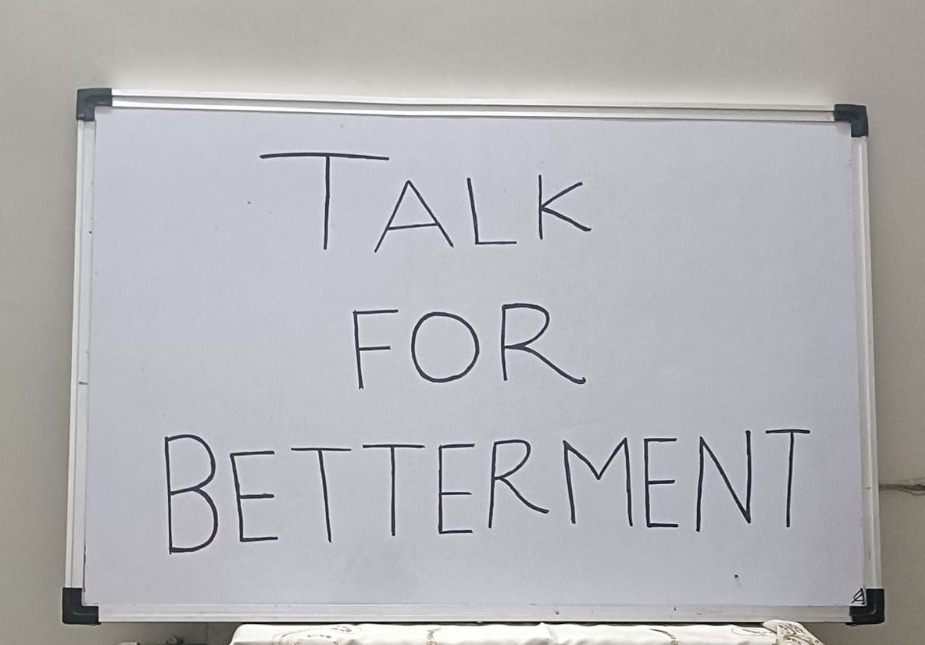 TALK
FOR
BETTERMENT